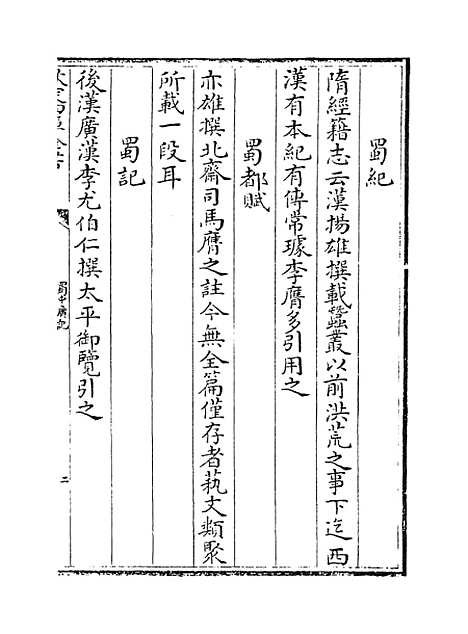 蜀紀
隋經籍志云漢揚雄撰載蠶叢以前洪荒之事下迄西
漢有本紀有傳常璩李膺多引用之
蜀都賦
亦雄撰北齋司馬膺之註今無全篇僅存者蓺文類聚
所載一段耳
蜀記
後漢廣漢李尤伯仁撰太平御覽引之
蜀中廣記
二